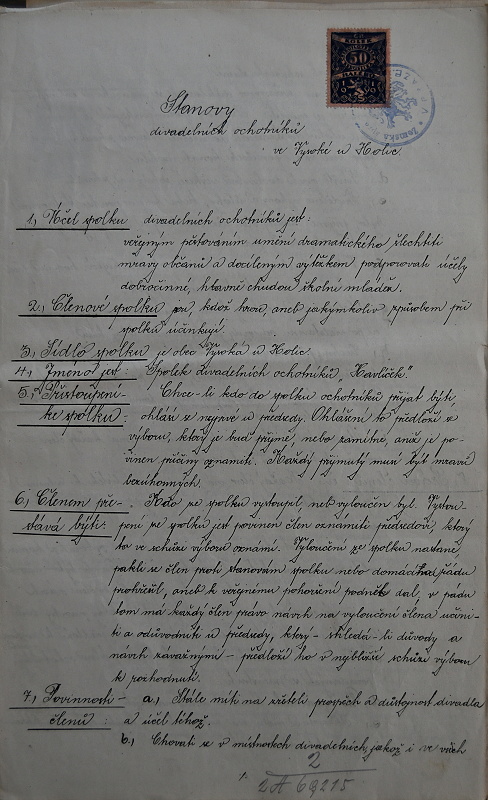 50
Stanovy
divadelních ochotníků
ve Vysoké u Holic.
1, Účel spolku divadelních ochotníků jest:
veřejným pěstováním umění dramatického šlechtiti
mravy občanů a docíleným výtěžkem podporovati účely
dobročinné, hlavně chudou školní mládež.
2, Členové spolku jsou, kdož hrou, aneb jakýmkoliv způsobem při
spolku účinkují.
3, Sídlo spolku je obec Vysoká u Holic.
4, Jmenoť jest: Spolek divadelních ochotníků „Havlíček"
5, Přistoupení- Chce-li kdo do spolku ochotníků přijat býti,
ke spolku: ohlásí se nejprve u předsedy. Ohlášení to předloží se
výboru, který je buď přijme, nebo zamítne, aniž je po-
vinen příčiny oznamiti. Každý přijmutý musí být mravů
bezúhonných.
6, Členem pře- Kdo ze spolku vystoupil, neb vyloučen byl. Vystou-
stává býti: pení ze spolku jest povinen člen oznámiti předsedovi, který
to ve schůzi výboru oznámí. Vyloučení ze spolku nastane,
pakli se člen proti stanovám spolku nebo domácímu řádu
prohřešil, aneb k veřejnému pohoršení podnět dal, v padu
tom má každý člen právo návrh na vyloučení člena učini-
ti a odůvodniti u předsedy, který - shledá-li důvody a
návrh závažnými - předloží ho v nejbližší schůzi výboru
k rozhodnutí.
7, Povinnosti- a, Stále míti na zřeteli prospěch a důstojnost divadla
členů: a účel téhož.
b, Chovati se v místnostech divadelních, jakož i ve všech
2